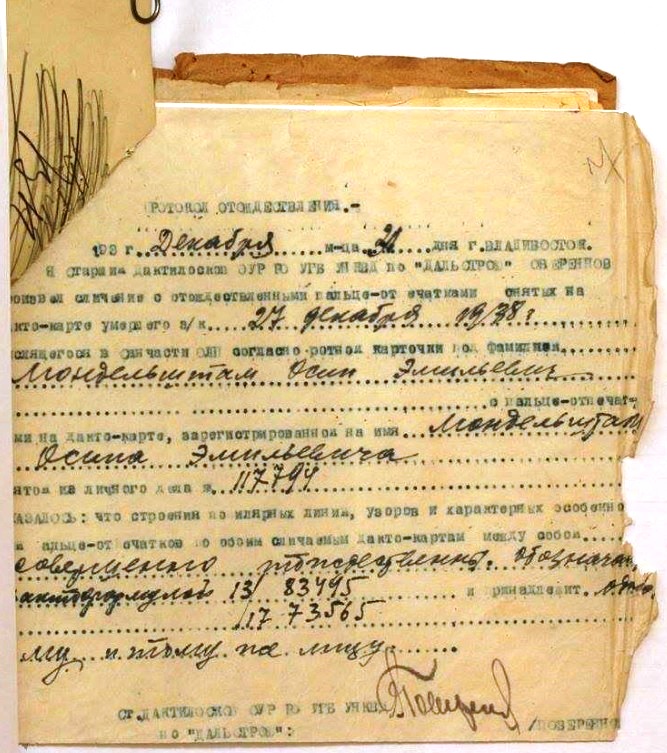 РОТОКОЛ ОТОЖДЕСТВЛЕНИЯ.-
193 г. Декабря м-ца 31 дня г. ВЛАДИВОСТОК.
Я старший дактилоскоп ОУР РО УГБ УНКВД по "ДАЛЬСТРОЮ" ПОВЕРЕННОВ
роизвел сличение с отождествленными пальце-отпечатками снятых на
акто-карте умершего з/к 27 декабря 1938 г
слящегося в санчасти ОЛП согласно ротной карточки под фамилией
Мондельштам Осип Эмильевич
с пальце-отпечат-
ми на дакто-карте, зарегистрированной на имя Мондельштам
Осипа Эмильевича
ятой из личного дела № 117794
КАЗАЛОСЬ: что строения папилярных линий, узоров и характерных особенно
пальце-отпечатков по обоим сличаемым дакто-картам между собой
совершенно тождественны. обознача
актоформулой 13/83495 и принадлежит одно
/17 73565
му и тому же лицу
СТ. ДАКТИЛОСКОП ОУР РО УГБ УНКВД
по "ДАЛЬСТРОЮ": /ПОВЕРЕННО